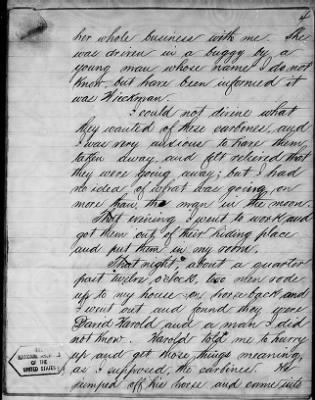 4
her whole business with me. She
was driven in a buggy by a
young man whose name I do not
know, but have been informed it
was Wieckman.
I could not divine what
they wanted of these carbines, and
I was very anxious to have them
taken away, and felt relieved that
they were going away; but I had
no idea of what was going on
more than the man in the moon.
That evening I went to work and
got them out of their hiding place
and put them in my room.
That night, about a quarter
past twelve o'clock, two men rode
up to my house on horseback and
I went out and found they were
David Harold and a man I did
not know. Harold told me to hurry
up and get those things meaning,
as I supposed, the carbines. He
jumped off his horse and came into
THE
NATIONAL ARCHIVES
OF THE
UNITED STATES